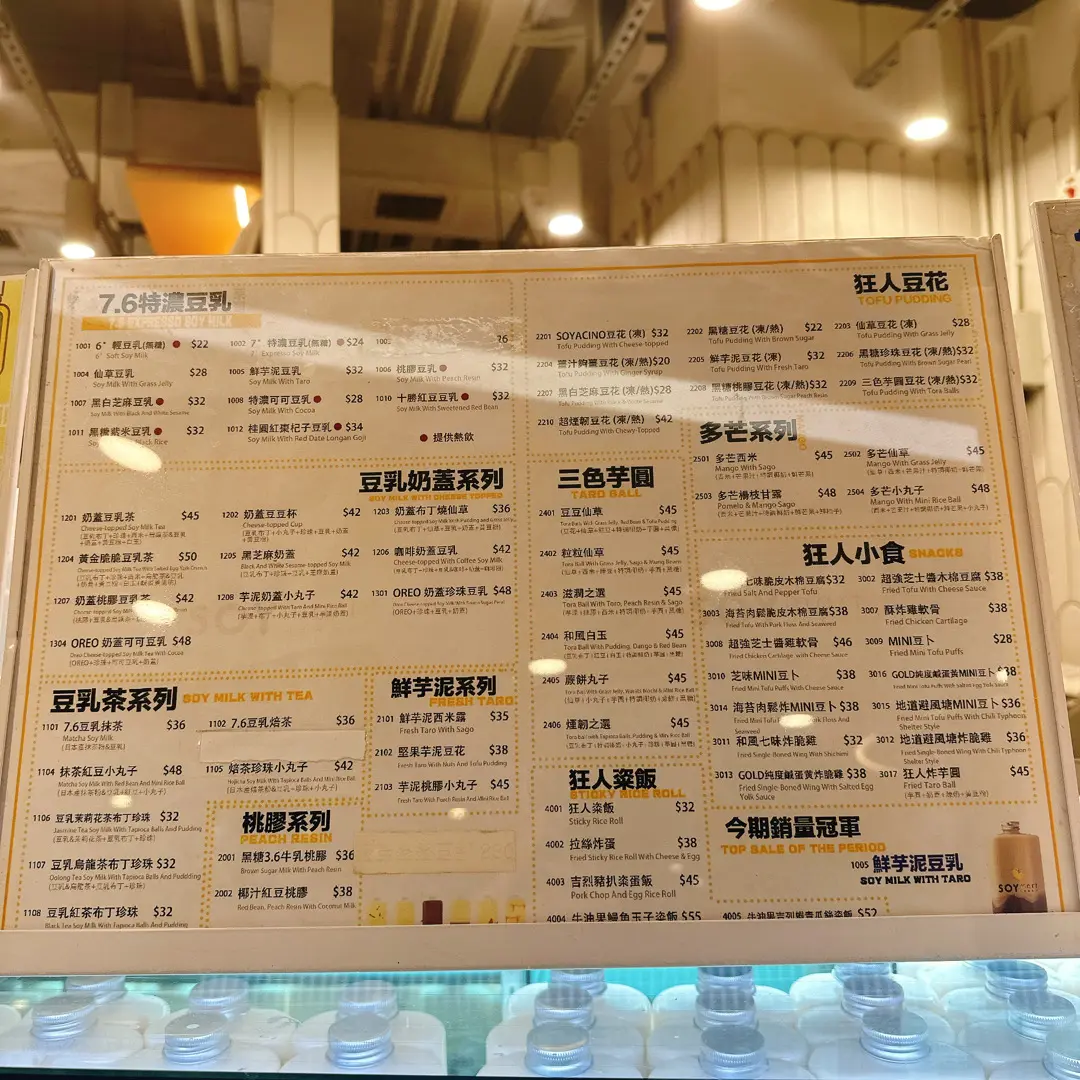 7.6特濃豆乳
7.6 EXPRESSO SOY MILK
1001 6° 輕豆乳(無糖) $22
6° Soft Soy Milk
1002 7° 特濃豆乳(無糖) $24
7° Expresso Soy Milk
26
1004 仙草豆乳 $28
Soy Milk With Grass Jelly
1005 鮮芋泥豆乳 $32
Soy Milk With Taro
1006 桃膠豆乳 $32
Soy Milk With Peach Resin
1007 黑白芝麻豆乳 $32
Soy Milk With Black And White Sesame
1008 特濃可可豆乳 $28
Soy Milk With Cocoa
1010 十勝紅豆豆乳 $32
Soy Milk With Sweetened Red Bean
1011 黑糯紫米豆乳 $32
Black Rice
1012 桂圓紅棗杞子豆乳 $34
Soy Milk With Red Date Longan Goji
提供熱飲
豆乳奶蓋系列
SOY MILK WITH CHEESE TOPPED
1201 奶蓋豆乳茶 $45
Cheese-topped Soy Milk Tea
1202 奶蓋豆豆杯 $42
Cheese-topped Cup
1203 奶蓋布丁燒仙草 $36
1204 黃金脆脆豆乳茶 $50
1205 黑芝麻奶蓋 $42
Black And White Sesame-topped Soy Milk
1206 咖啡奶蓋豆乳 $42
Cheese-topped With Coffee Soy Milk
1207 奶蓋桃膠豆乳茶 $42
1208 芋泥奶蓋小丸子 $42
1301 OREO 奶蓋珍珠豆乳 $48
1304 OREO 奶蓋可可豆乳 $48
Oreo Cheese-topped Soy Milk Tea With Cocoa
豆乳茶系列 SOY MILK WITH TEA
1101 7.6豆乳抹茶 $36
Matcha Soy Milk
(日本產抹茶粉&豆乳)
1102 7.6豆乳焙茶 $36
1104 抹茶紅豆小丸子 $48
Matcha Soy Milk With Red Bean And Mini Rice Ball
(日本產抹茶粉&豆乳+紅豆+小丸子)
1105 焙茶珍珠小丸子 $42
Hojicha Soy Milk With Tapioca Balls And Mini Rice Ball
(日本產焙茶粉&豆乳+珍珠+小丸子)
1106 豆乳茉莉花茶布丁珍珠 $32
Jasmine Tea Soy Milk With Tapioca Balls And Pudding
(豆乳&茉莉花茶+豆乳布丁+珍珠)
1107 豆乳烏龍茶布丁珍珠 $32
Oolong Tea Soy Milk With Tapioca Balls And Pudding
(豆乳&烏龍茶+豆乳布丁+珍珠)
1108 豆乳紅茶布丁珍珠 $32
Black Tea Soy Milk With Tapioca Balls And Pudding
桃膠系列
PEACH RESIN
2001 黑糖3.6牛乳桃膠 $36
Brown Sugar Milk With Peach Resin
2002 椰汁紅豆桃膠 $38
Red Bean, Peach Resin With Coconut Milk
鮮芋泥系列
FRESH TARO
2101 鮮芋泥西米露 $35
Fresh Taro With Sago
2102 堅果芋泥豆花 $38
Fresh Taro With Nuts And Tofu Pudding
2103 芋泥桃膠小丸子 $45
Fresh Taro With Peach Resin And Mini Rice Ball
狂人豆花
TOFU PUDDING
2201 SOYACINO豆花 (凍) $32
Tofu Pudding With Cheese topped
2202 黑糖豆花 (凍/熱) $22
Tofu Pudding With Brown Sugar
2203 仙草豆花 (凍) $28
Tofu Pudding With Grass Jelly
2204 薑汁鉤薑豆花 (凍/熱)$20
Tofu Pudding With Ginger Syrup
2205 鮮芋泥豆花 (凍) $32
Tofu Pudding With Fresh Taro
2206 黑糖珍珠豆花 (凍/熱)$32
Tofu Pudding With Brown Sugar Pearl
2207 黑白芝麻豆花 (凍/熱)$28
2208 黑糖桃膠豆花 (凍/熱) $32
Tofu Pudding With Brown Sugar Peach Resin
2209 三色芋圓豆花 (凍/熱)$32
Tofu Pudding With Tora Balls
2210 超煙韌豆花 (凍/熱) $42
Tofu Pudding With Chewy-Topped
三色芋圓
TARO BALL
2401 豆豆仙草 $45
2402 粒粒仙草 $45
Tora Ball With Grass Jelly, Sago & Mung Beans
2403 滋潤之選 $45
Tora Ball With Toro, Peach Resin & Sago
2404 和風白玉 $45
Tora Ball With Pudding, Dango & Red Bean
2405 蕨餅丸子 $45
2406 煙韌之選 $45
多芒系列
2501 多芒西米 $45
Mango With Sago
2502 多芒仙草 $45
Mango With Grass Jelly
2503 多芒楊枝甘露 $48
Pomelo & Mango Sago
2504 多芒小丸子 $48
Mango With Mini Rice Ball
狂人小食 SNACKS
七味脆皮木棉豆腐$32
Fried Salt And Pepper Tofu
3002 超強芝士醬木棉豆腐 $38
Fried Tofu With Cheese Sauce
3003 海苔肉鬆脆皮木棉豆腐$38
Fried Tofu With Pork Floss And Seaweed
3007 酥炸雞軟骨 $38
Fried Chicken Cartilage
3008 超強芝士醬雞軟骨 $46
Fried Chicken Cartilage with Cheese Sauce
3009 MINI豆卜 $28
Fried Mini Tofu Puffs
3010 芝味MINI豆卜 $38
Fried Mini Tofu Puffs With Cheese Sauce
3016 GOLD純度鹹蛋黃MINI豆卜 $38
Fried Mini Tofu Puffs With Salted Egg Yolk Sauce
3014 海苔肉鬆炸MINI豆卜 $38
Seaweed
3015 地道避風塘MINI豆卜 $36
Fried Mini Tofu Puffs With Chili Typhoon
Shelter Style
3011 和風七味炸脆雞 $32
Fried Single-Boned Wing With Shichimi
3012 地道避風塘炸脆雞 $36
Fried Single-Boned Wing With Chili Typhoon
Shelter Style
3013 GOLD純度鹹蛋黃炸脆雞 $38
Fried Single-Boned Wing With Salted Egg
Yolk Sauce
3017 狂人炸芋圓 $45
Fried Taro Ball
狂人粢飯
STICKY RICE ROLL
4001 狂人粢飯 $32
Sticky Rice Roll
4002 拉絲炸蛋 $38
Fried Sticky Rice Roll With Cheese & Egg
4003 吉烈豬扒粢蛋飯 $45
Pork Chop And Egg Rice Roll
4004 牛油果鰻魚玉子粢飯 $55
4005 $52
今期銷量冠軍
TOP SALE OF THE PERIOD
1005 鮮芋泥豆乳
SOY MILK WITH TARO
SOY